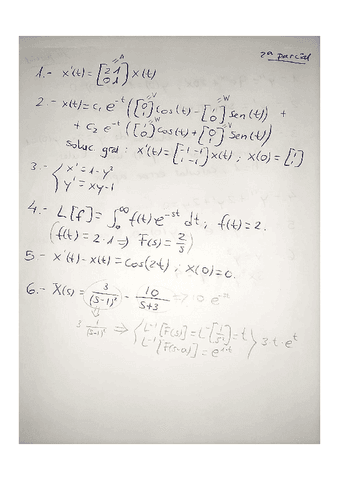 2ª parcial
=A
1.- x'(t) = [2 1; 0 1] x(t)
=V =W
2.- x(t) = c₁ e^-t ([1; 0] cos(t) - [0; 1] sen(t)) +
=W =V
+ c₂ e^-t ([0; 1] cos(t) + [1; 0] sen(t))
soluc gral : x'(t) = [-1 -1; 1 -1] x(t) ; x(0) = [1; 1]
3.- { x' = 1 - y²
y' = xy - 1
4.- L[f] = ∫₀^∞ f(t) e^-st dt ; f(t) = 2.
(f(t) = 2·1 ⇒ F(s) = 2/s)
5.- x'(t) - x(t) = cos(2t) ; x(0) = 0.
6.- X(s) = 3/(s-1)² - 10/(s+3)
3 1/(s-1)² ⇒ { L⁻¹[F(s)] = L⁻¹[1/s²] = t } 3·t·e^t